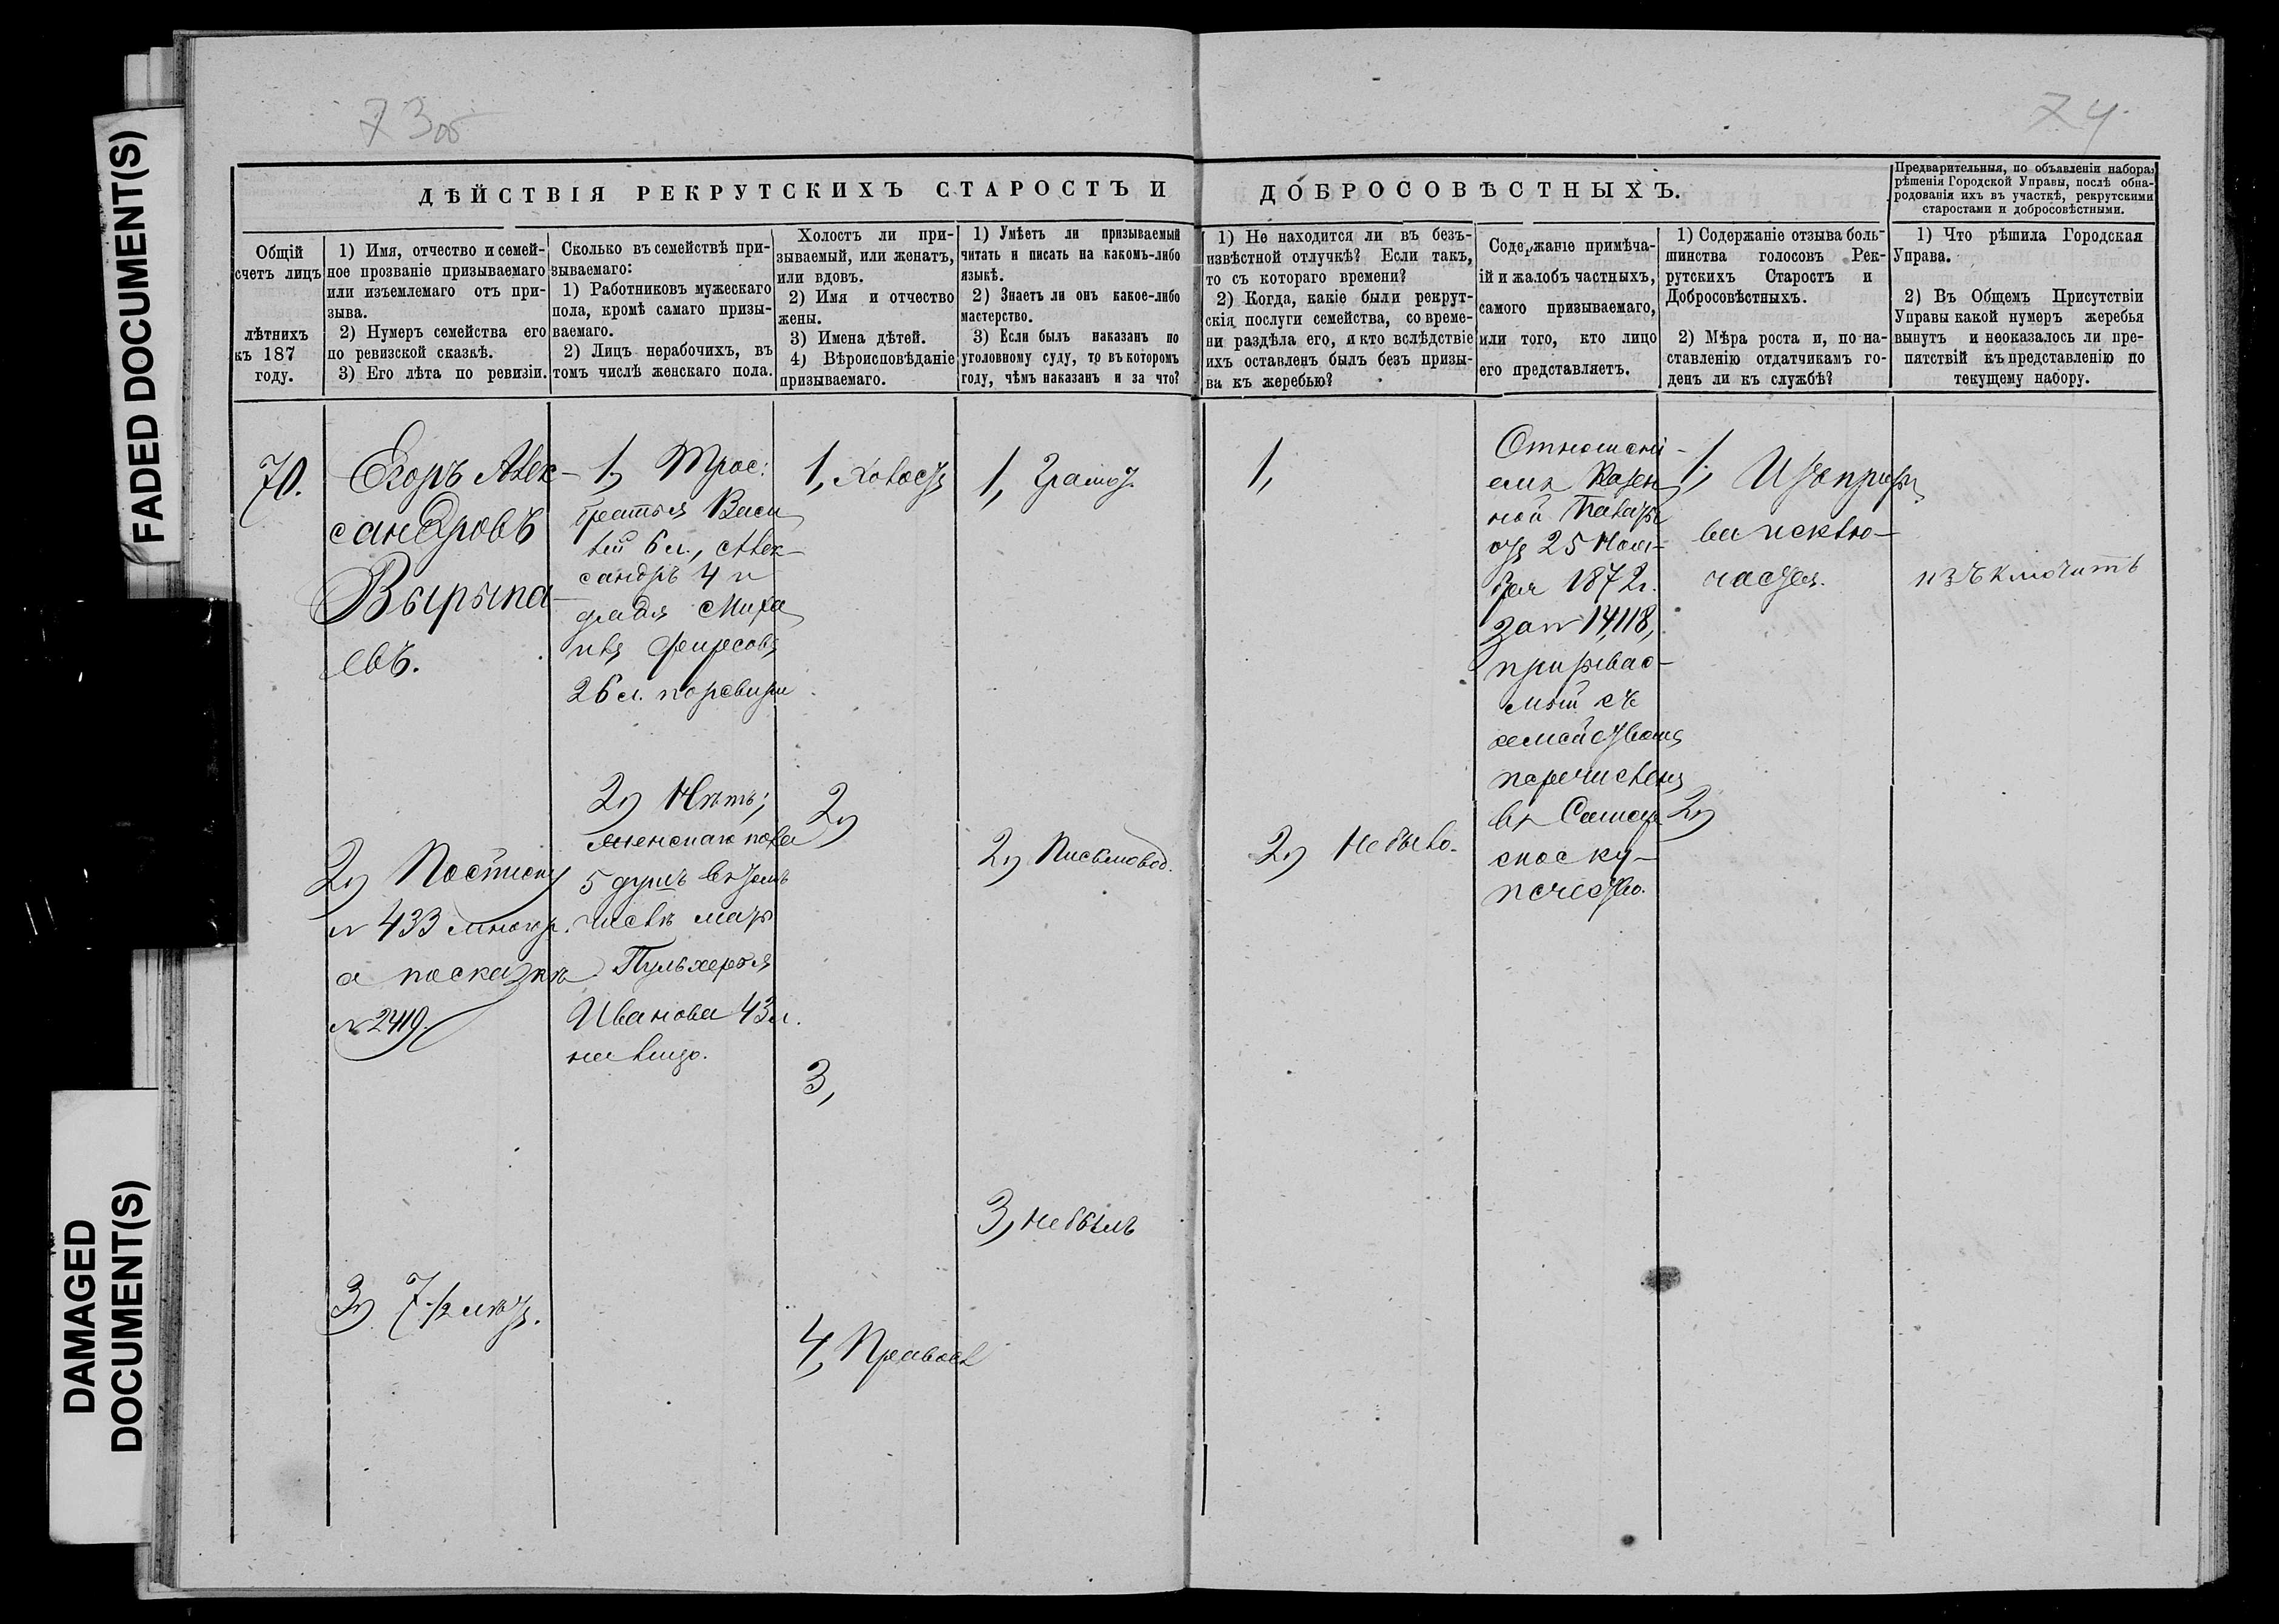 FADED DOCUMENT(S)
DAMAGED
DOCUMENT(S)
73об
74
ДѢЙСТВІЯ РЕКРУТСКИХЪ СТАРОСТЪ И ДОБРОСОВѢСТНЫХЪ.
Предварительныя, по объявленіи набора,
рѣшенія Городской Управы, послѣ обна-
родованія ихъ въ участкѣ, рекрутскими
старостами и добросовѣстными.
Общій
счетъ лицъ
лѣтнихъ
къ 187
году.
1) Имя, отчество и семей-
ное прозваніе призываемаго
или изъемлемаго отъ при-
зыва.
2) Нумеръ семейства его
по ревизской сказкѣ.
3) Его лѣта по ревизіи.
Сколько въ семействѣ при-
зываемаго:
1) Работниковъ мужескаго
пола, кромѣ самаго призы-
ваемаго.
2) Лицъ нерабочихъ, въ
томъ числѣ женскаго пола.
Холостъ ли при-
зываемый, или женатъ,
или вдовъ.
2) Имя и отчество
жены.
3) Имена дѣтей.
4) Вѣроисповѣданіе
призываемаго.
1) Умѣетъ ли призываемый
читать и писать на какомъ-либо
языкѣ.
2) Знаетъ ли онъ какое-либо
мастерство.
3) Если былъ наказанъ по
уголовному суду, то въ которомъ
году, чѣмъ наказанъ и за что?
1) Не находится ли въ безъ-
извѣстной отлучкѣ? Если такъ,
то съ котораго времени?
2) Когда, какіе были рекрут-
скія послуги семейства, со време-
ни раздѣла его, я кто вслѣдствіе
ихъ оставленъ былъ безъ призы-
ва къ жеребью?
Содержаніе примѣча-
ій и жалобъ частныхъ,
самого призываемаго,
или того, кто лицо
его представляетъ.
1) Содержаніе отзыва боль-
шинства голосовъ Рек-
рутскихъ Старостъ и
Добросовѣстныхъ.
2) Мѣра роста и, по на-
ставленію отдатчикамъ го-
денъ ли къ службѣ?
1) Что рѣшила Городская
Управа.
2) Въ Общемъ Присутствіи
Управы какой нумеръ жеребья
вынутъ и неоказалось ли пре-
пятствій къ представленію по
текущему набору.
70.
Егоръ Алек-
сандровъ
Вырыпа-
евъ.
2) Посписку
№ 433
а посказкѣ
№ 2419.
3) 7 1/2 лѣтъ.
1) Трое:
братья Васи
лій 6 л., Алек-
сандръ 4 и
дядя Миха
илъ
26 л. поревизіи
2) Нѣтъ;
женскаго пола
5 душъ въ томъ
числѣ мать
Пульхерія
Иванова 43 л.
на лицо.
1, Холостъ
2)
3,
4, Правосл
1, Грамот.
2) Письмовод.
3, не былъ
1,
2) Не было.
Отношені-
емъ Казен
ной Палаты
отъ 25 Нояб-
бря 1872 г.
за № 14,118,
призывае-
мый съ
семействомъ
перечисленъ
въ Самар
ское ку-
печество.
1, Изъ призы
ва исклю-
чается.
2)
изъключитъ